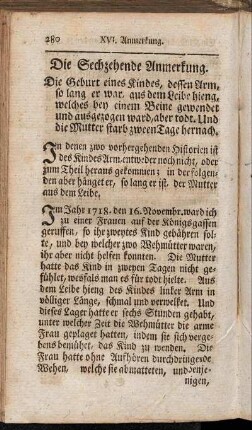 280 XVI. Anmerkung.
Die Sechzehende Anmerkung.
Die Geburt eines Kindes, dessen Arm,
so lang er war, aus dem Leibe hieng,
welches bey einem Beine gewendet
und ausgezogen ward, aber todt. Und
die Mutter starb zween Tage hernach.
In denen zwo vorhergehenden Historien ist
des Kindes Arm entweder noch nicht, oder
zum Theil heraus gekommen; in der folgen-
den aber hänget er, so lang er ist, der Mutter
aus dem Leibe.
Im Jahr 1718. den 16. Novembr. ward ich
zu einer Frauen auf der Königsgassen
geruffen, so ihr zweytes Kind gebähren soll-
te, und bey welcher zwo Wehmütter waren,
ihr aber nicht helfen konnten. Die Mutter
hatte das Kind in zweyen Tagen nicht ge-
fühlet, weshals man es für todt hielte. Aus
dem Leibe hieng des Kindes linker Arm in
völliger Länge, schmal und verwelket. Und
dieses Lager hatte er sechs Stunden gehabt,
unter welcher Zeit die Wehmütter die arme
Frau geplaget hatten, indem sie sich verge-
bens bemühet, das Kind zu wenden. Die
Frau hatte ohne Aufhören durchdringende
Wehen, welche sie abmatteten, und denje-
nigen,